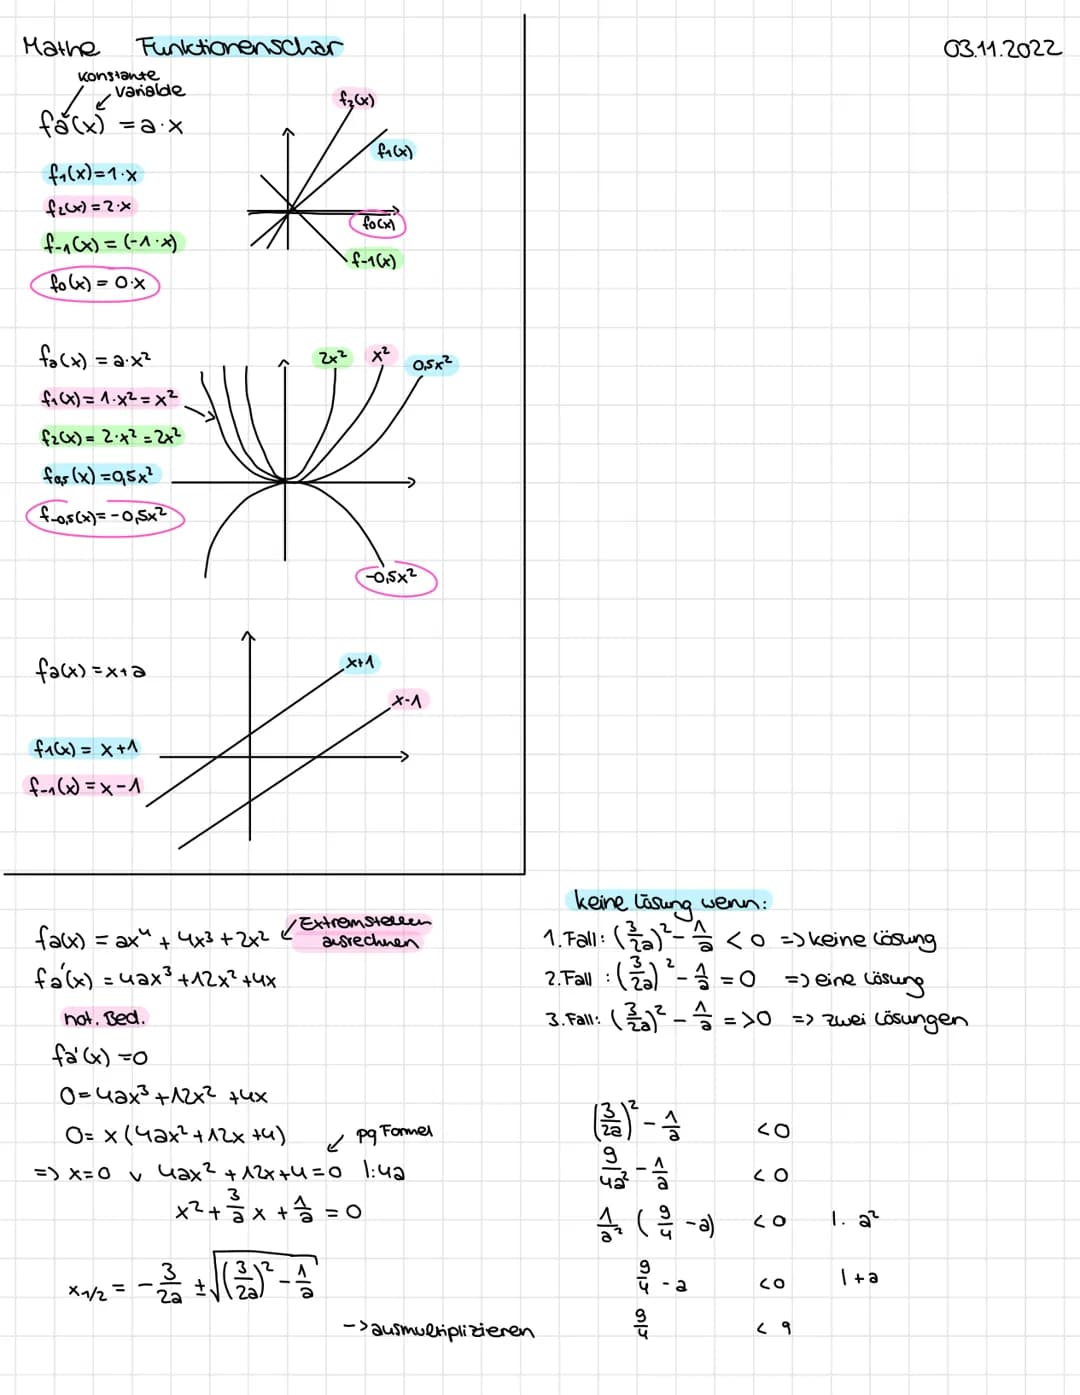 Mathe Funktionenschar
03.11.2022
Konstante
Variable
fa(x) = a·x
f₁(x)=1·x
f₂(x)=2·x
f₋₁(x) = (-1·x)
f₀(x) = 0·x
f₂(x)
f₁(x)
f₀(x)
f-1(x)
fa(x) = a·x²
f₁(x) = 1·x² = x²
f₂(x) = 2·x² = 2x²
f₀,₅(x) = 0,5x²
f₋₀,₅(x) = -0,5x²
2x²
x²
0,5x²
-0,5x²
fa(x) = x+a
f₁(x) = x+1
f₋₁(x) = x-1
x+1
x-1
fa(x) = ax⁴ + 4x³ + 2x²
Extremstellen
ausrechnen
fa'(x) = 4ax³ + 12x² + 4x
not. Bed.
fa'(x) = 0
0 = 4ax³ + 12x² + 4x
0 = x (4ax² + 12x + 4)
pq Formel
=> x=0 v 4ax² + 12x + 4 = 0 |:4a
x² + 3/a x + 1/a = 0
x₁/₂ = - 3/2a ± √((3/2a)² - 1/a)
->ausmultiplizieren
keine Lösung wenn:
1. Fall: (3/2a)² - 1/a < 0 => keine Lösung
2. Fall: (3/2a)² - 1/a = 0 => eine Lösung
3. Fall: (3/2a)² - 1/a => 0 => zwei Lösungen
(3/2a)² - 1/a < 0
9/4a² - 1/a < 0
1/a² (9/4 - a) < 0 |· a²
9/4 - a < 0 |+a
9/4 < 9